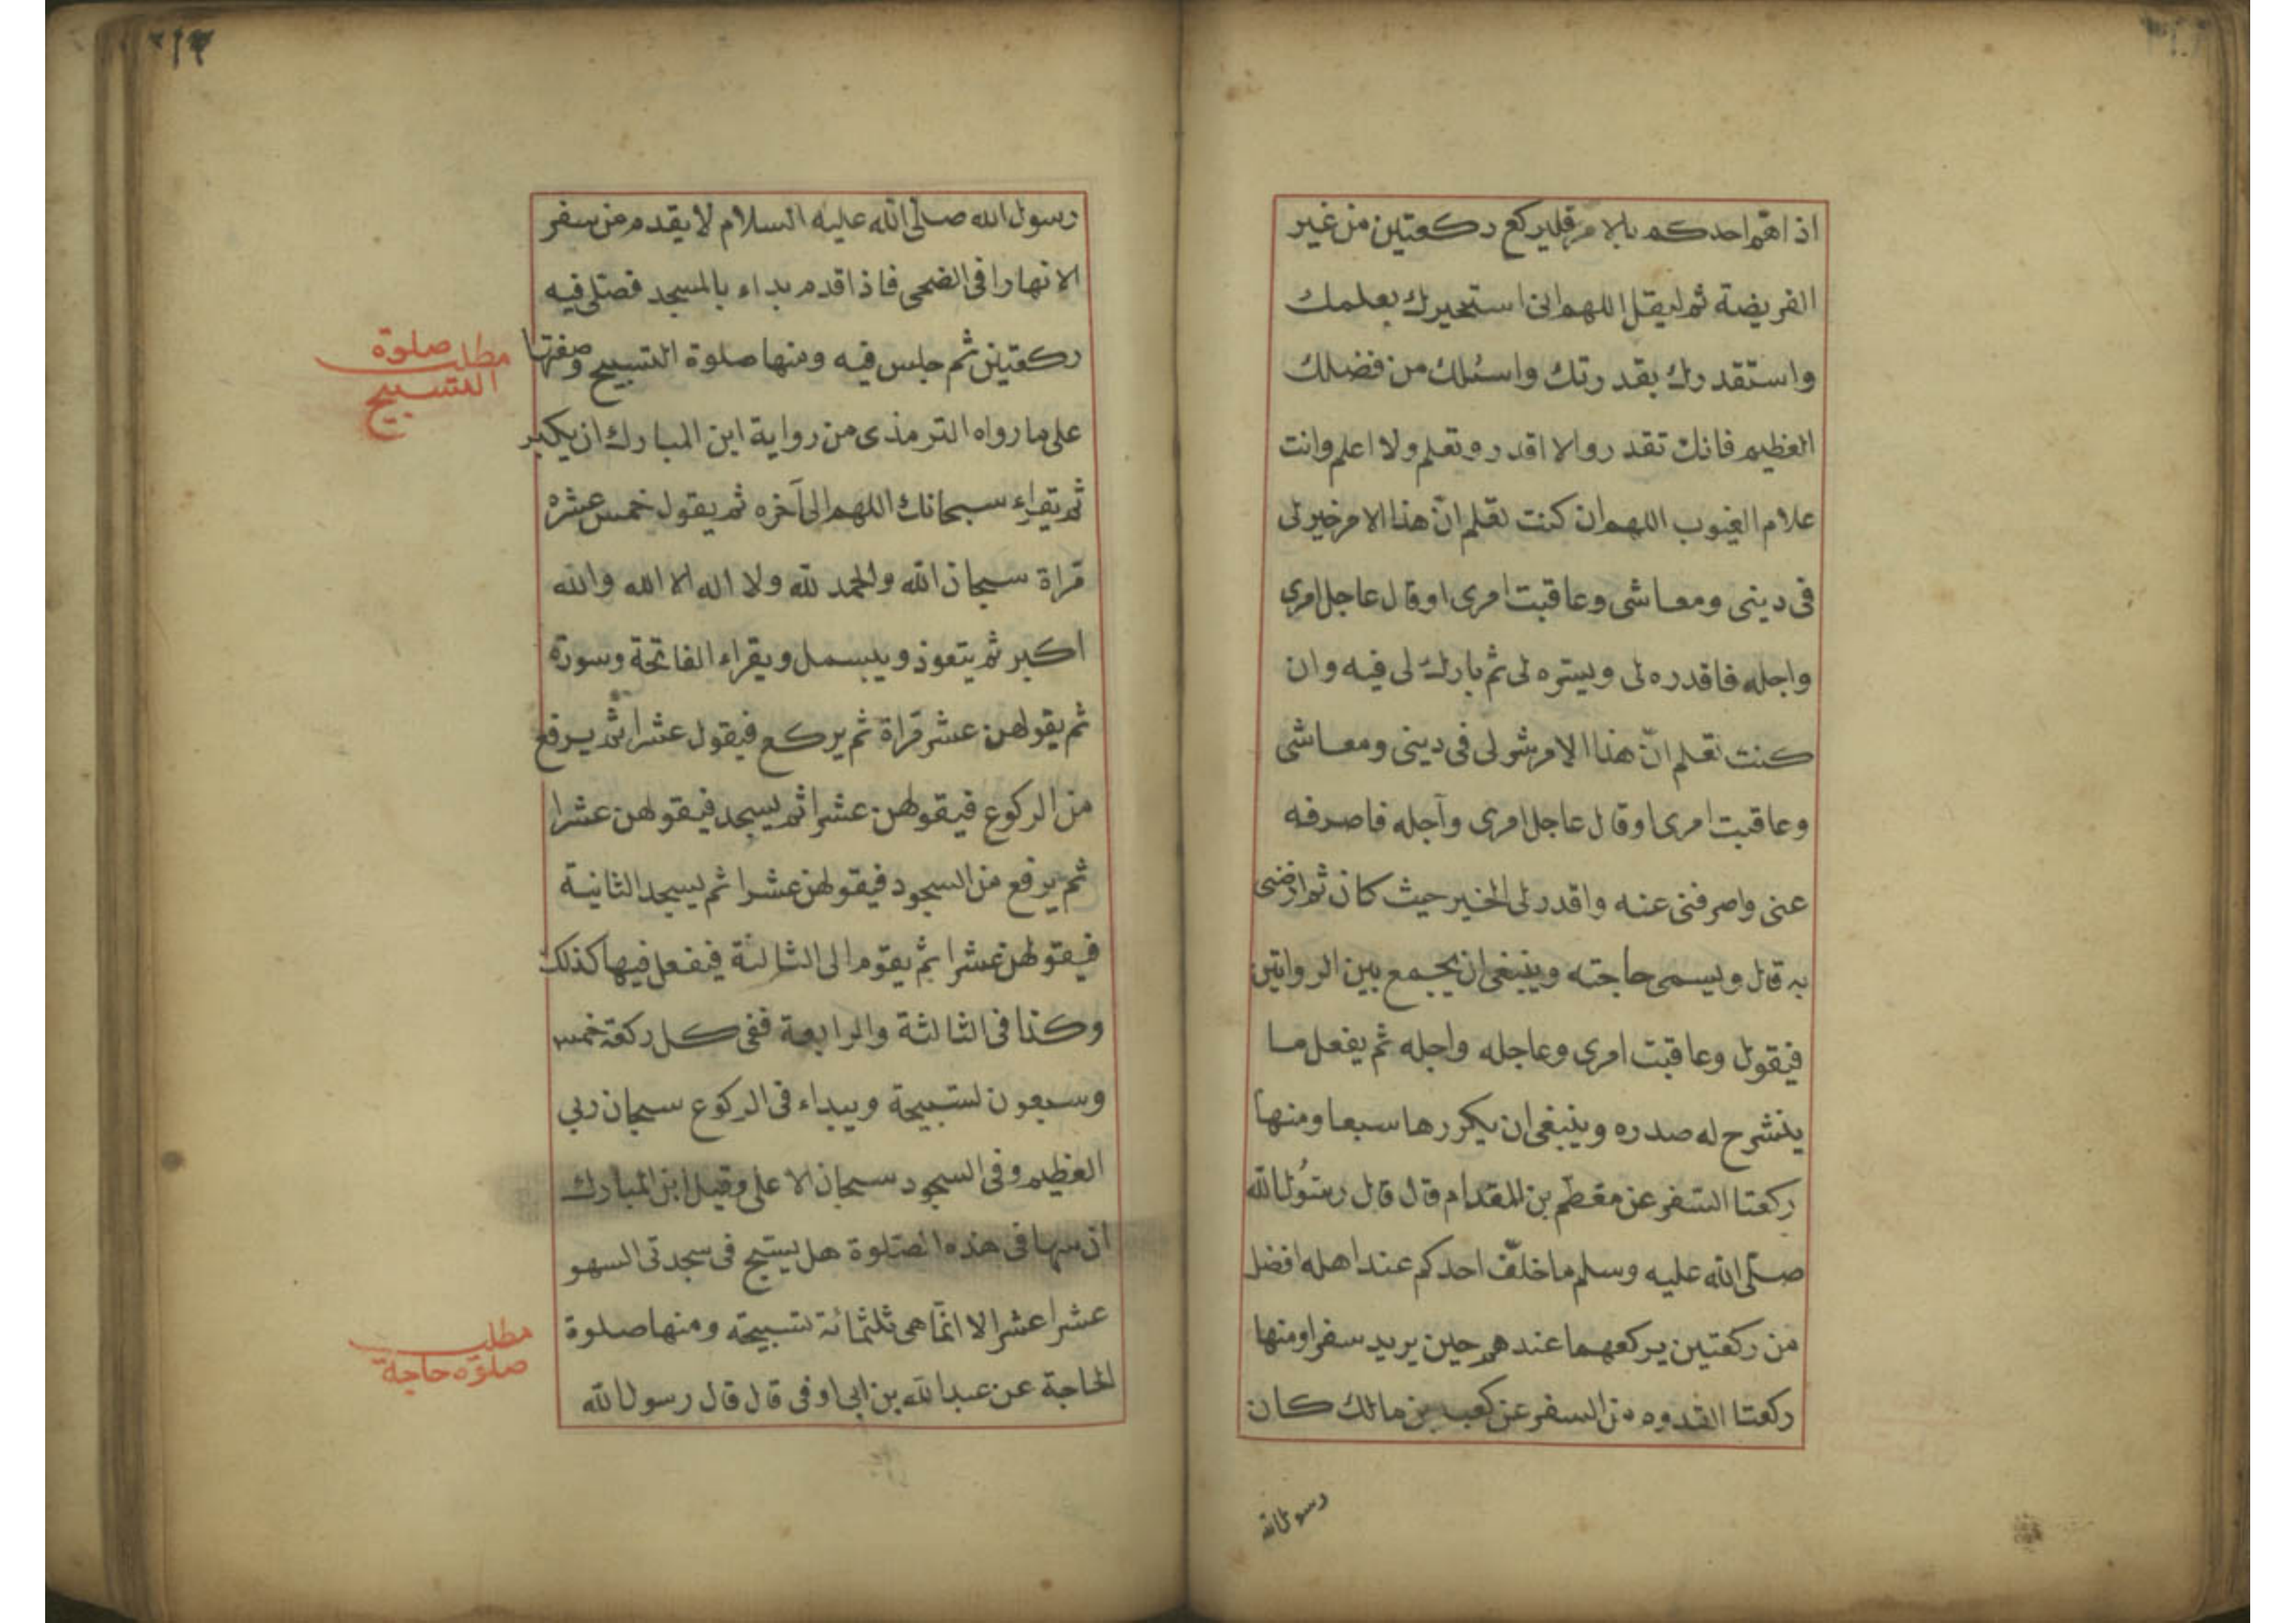 اذا هم احدكم بالامر فليركع ركعتين من غير
الفريضة ثم ليقل اللهم انى استخيرك بعلمك
واستقدرك بقدرتك واسئلك من فضلك
العظيم فانك تقدر ولا اقدر وتعلم ولا اعلم وانت
علام الغيوب اللهم ان كنت تعلم انّ هذا الامر خير لى
فى دينى ومعاشى وعاقبت امرى او قال عاجل امرى
واجله فاقدره لى ويسّره لى ثم بارك لى فيه وان
كنت تعلم انّ هذا الامر شر لى فى دينى ومعاشى
وعاقبت امرى او قال عاجل امرى وآجله فاصرفه
عنى واصرفنى عنه واقدر لى الخير حيث كان ثم ارضنى
به قال ويسمى حاجته وينبغى ان يجمع بين الروايتين
فيقول وعاقبت امرى وعاجله واجله ثم يفعل ما
ينشرح له صدره وينبغى ان يكررها سبعا ومنها
ركعتا السفر عن مقطم بن المقدام قال قال رسُول الله
صلّى الله عليه وسلم ما خلّف احدكم عند اهله افضل
من ركعتين يركعهما عندهم حين يريد سفرا ومنها
ركعتا القدوم من السفر عن كعب بن مالك كان
رسول الله
٢١٣
رسول الله صلّى الله عليه السلام لا يقدم من سفر
الا نهارا فى الضحى فاذا قدم بداء بالمسجد فصلّى فيه
ركعتين ثم جلس فيه ومنها صلوة التسبيح وصفتها
مطلب صلوة
التسبيح
على ما رواه الترمذى من رواية ابن المبارك ان يكبر
ثم يقراء سبحانك اللهم الى آخره ثم يقول خمس عشره
مراة سبحان الله والحمد لله ولا اله الا الله والله
اكبر ثم يتعوذ ويبسمل ويقراء الفاتحة وسورة
ثم يقولهن عشر مراة ثم يركع فيقول عشرا ثم يرفع
من الركوع فيقولهن عشرا ثم يسجد فيقولهن عشرا
ثم يرفع من السجود فيقولهن عشرا ثم يسجد الثانية
فيقولهن عشرا ثم يقوم الى الثالثة فيفعل فيها كذلك
وكذا فى الثالثة والرابعة ففى كل ركعة خمس
وسبعون تسبيحة ويبداء فى الركوع سبحان ربي
العظيم وفى السجود سبحان الاعلى وقيل ابن المبارك
ان سها فى هذه الصّلوة هل يسبّح فى سجدتى السهو
عشرا عشرا لا انّما هى ثلثمائة تسبيحة ومنها صلوة
مطلب
صلوة حاجة
الحاجة عن عبد الله بن ابى اوفى قال قال رسول الله